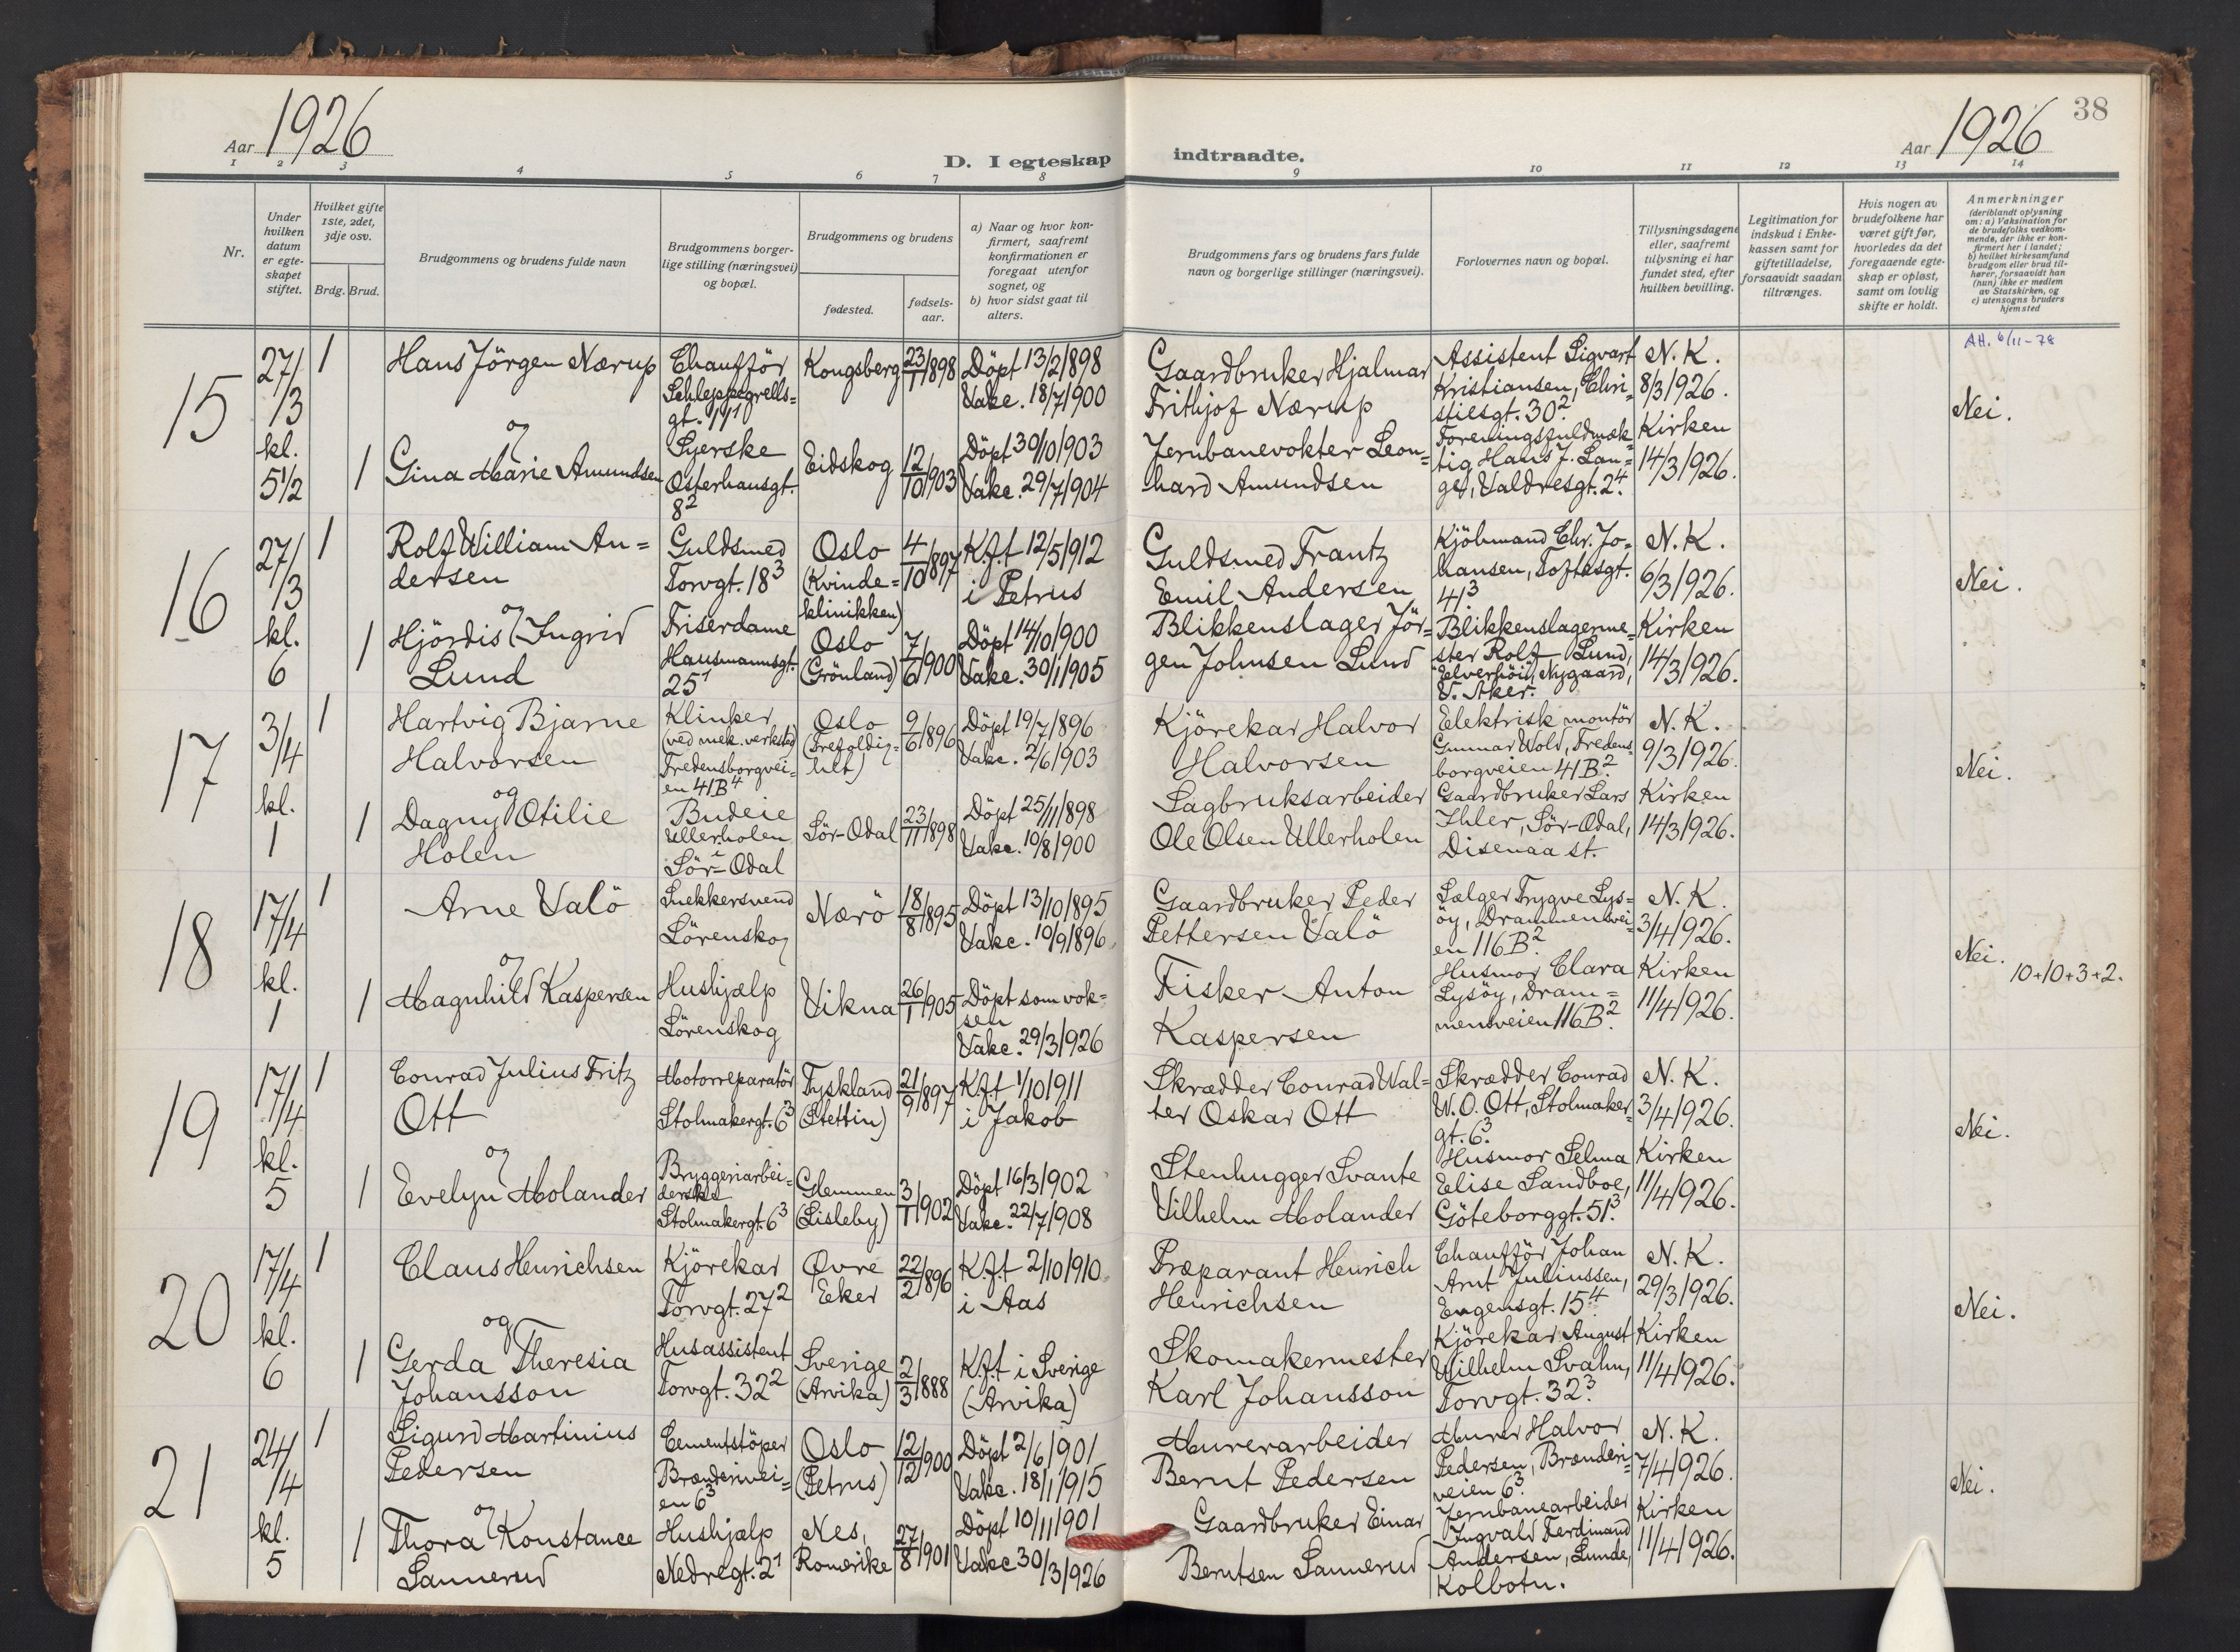 38
Aar 1926
D. I egteskap indtraadte.
Aar 1926
1 2 3 4 5 6 7 8 9 10 11 12 13 14
Nr.
Under hvilken datum er egte-skapet stiftet.
Hvilket gifte 1ste, 2det, 3dje osv.
Brdg. Brud.
Brudgommens og brudens fulde navn
Brudgommens borger-lige stilling (næringsvei) og bopæl.
Brudgommens og brudens
fødested.
fødsels-aar.
a) Naar og hvor kon-firmert, saafremt konfirmationen er foregaat utenfor sognet, og
b) hvor sidst gaat til alters.
Brudgommens fars og brudens fars fulde navn og borgerlige stillinger (næringsvei).
Forlovernes navn og bopæl.
Tillysningsdagene eller, saafremt tillysning ei har fundet sted, efter hvilken bevilling.
Legitimation for indskud i Enke-kassen samt for giftetilladelse, forsaavidt saadan tiltrænges.
Hvis nogen av brudefolkene har været gift før, hvorledes da det foregaaende egte-skap er opløst, samt om lovlig skifte er holdt.
Anmerkninger
(deriblandt oplysning om: a) Vaksination for de brudefolks vedkom-mende, der ikke er kon-firmert her i landet; b) hvilket kirkesamfund brudgom eller brud til-hører, forsaavidt han (hun) ikke er medlem av Statskirken, og c) utensogns bruders hjemsted
AH. 6/11-78
15
27/3
kl.
5½
1
Hans Jörgen Nærup
Chaufför
Schleppegrells=
gt. 11¹
Kongsberg
23/1 1898
Döpt 13/2 1898
Vakc. 18/7 1900
Gaardbruker Hjalmar
Frithjof Nærup
Assistent Sigvart
Kristiansen, Chri=
stiesgt. 30².
N. K.
8/3 1926.
Nei.
og
1
Gina Marie Amundsen
Syerske
Osterhausgt.
8²
Eidskog
12/10 1903
Döpt 30/10 1903
Vakc. 29/7 1904
Jernbanevokter Leon=
hard Amundsen
Foreningsfuldmæk=
tig Hans J. Lan=
ge, Valdresgt. 2⁴.
Kirken
14/3 1926.
16
27/3
kl.
6
1
Rolf William An=
dersen
Guldsmed
Torvgt. 18³
Oslo
(Kvinde=
klinikken)
4/10 1897
Kft 12/5 1912
i Petrus
Guldsmed Frantz
Emil Andersen
Kjöbmand Chr. Jo=
hansen, Toftesgt.
41³
N. K.
6/3 1926.
Nei.
og
1
Hjördis Ingrid
Lund
Friserdame
Hausmannsgt.
25¹
Oslo
(Grönland)
7/6 1900
Döpt 14/10 1900
Vakc. 30/1 1905
Blikkenslager Jör=
gen Johnsen Lund
Blikkenslagerme=
ster Rolf Lund,
"Elverhöi", Nygaard,
V. Aker.
Kirken
14/3 1926.
17
3/4
kl.
1
1
Hartvig Bjarne
Halvorsen
Klinker
(ved mek. verksted)
Fredensborgvei=
en 41B⁴
Oslo
(Trefoldig=
het)
9/6 1896
Döpt 19/7 1896
Vakc. 2/6 1903
Kjörekar Halvor
Halvorsen
Elektrisk montör
Gunnar Wold, Fredens=
borgveien 41B².
N. K.
9/3 1926.
Nei.
og
1
Dagny Otilie
Holen
Budeie
Ullerholen
i
Sör-Odal
Sör-Odal
23/11 1898
Döpt 25/11 1898
Vakc. 10/8 1900
Sagbruksarbeider
Ole Olsen Ullerholen
Gaardbruker Lars
Ihler, Sör-Odal,
Disenaa st.
Kirken
14/3 1926.
18
17/4
kl.
1
1
Arne Valö
Snekkersvend
Lörenskog
Nærö
18/8 1895
Döpt 13/10 1895
Vakc. 10/9 1896
Gaardbruker Peder
Pettersen Valö
Sælger Trygve Lys=
öy, Drammensvei=
en 116B².
N. K.
3/4 1926.
Nei.
10+10+3+2.
og
1
Magnhild Kaspersen
Hushjælp
Lörenskog
Vikna
26/1 1905
Döpt som vok=
sen
Vakc. 29/3 1926
Fisker Anton
Kaspersen
Husmor Clara
Lysöy, Dram=
mensveien 116B².
Kirken
11/4 1926.
19
17/4
kl.
5
1
Conrad Julius Fritz
Ott
Motorreparatör
Stolmakergt. 6³
Tyskland
(Stettin)
21/9 1897
Kft 1/10 1911
i Jakob
Skrædder Conrad Wal=
ter Oskar Ott
Skrædder Conrad
W. O. Ott, Stolmaker=
gt. 6³.
N. K.
3/4 1926.
Nei.
og
1
Evelyn Molander
Bryggeriarbei=
derske
Stolmakergt. 6³
Glemmen
(Lisleby)
3/1 1902
Döpt 16/3 1902
Vakc. 22/7 1908
Stenhugger Svante
Vilhelm Molander
Husmor Selma
Elise Sandboe,
Göteborggt. 51³.
Kirken
11/4 1926.
20
17/4
kl.
6
1
Claus Henrichsen
Kjörekar
Torvgt. 27²
Øvre
Eker
22/2 1896
Kft 2/10 1910
i Aas
Præparant Henrich
Henrichsen
Chaufför Johan
Arnt Juliussen,
Engensgt. 15⁴.
N. K.
29/3 1926.
Nei.
og
1
Gerda Theresia
Johansson
Husassistent
Torvgt. 32²
Sverige
(Arvika)
2/3 1888
Kft i Sverige
(Arvika)
Skomakermester
Karl Johansson
Kjörekar August
Wilhelm Svahn,
Torvgt. 32³.
Kirken
11/4 1926.
21
24/4
kl.
5
1
Sigurd Martinius
Pedersen
Cementstöper
Brænderivei=
en 6³
Oslo
(Petrus)
12/12 1900
Döpt 2/6 1901
Vakc. 18/1 1915
Murerarbeider
Bernt Pedersen
Murer Halvor
Pedersen, Brænderi=
veien 6³.
N. K.
7/4 1926.
Nei.
og
1
Thora Konstance
Sannerud
Hushjælp
Nedregt. 2¹
Nes,
Romerike
27/8 1901
Döpt 10/11 1901
Vakc 30/3 1926
Gaardbruker Einar
Berntsen Sannerud
Jernbanearbeider
Ingvald Ferdinand
Andersen, Lunde,
Kolbotn.
Kirken
11/4 1926.